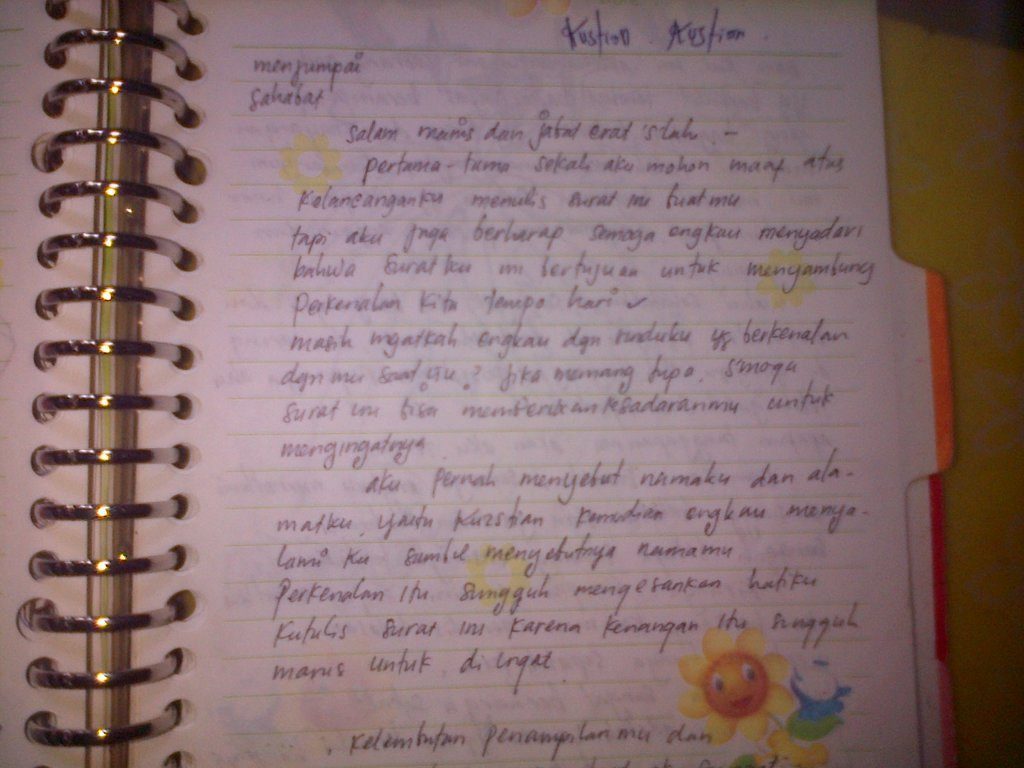 Kustian Kustian.
menjumpai
Sahabat
salam manis dan jabat erat s'lah. -
pertama-tama sekali aku mohon maaf atas
kelancanganku menulis surat ini buatmu
tapi aku juga berharap semoga engkau menyadari
bahwa suratku ini bertujuan untuk menyambung
perkenalan kita tempo hari
masih ingatkah engkau dgn yg berkenalan
dgn mu saat itu? jika memang lupa. s'moga
surat ini bisa memberikan kesadaranmu untuk
mengingatnya
aku pernah menyebut namaku dan ala-
matku, yaitu Kurstian kemudian engkau menya-
lami ku sambil menyebutnya namamu
Perkenalan itu sungguh mengesankan hatiku
kutulis surat ini karena kenangan itu sungguh
manis untuk di ingat
kelembutan penampilanmu dan